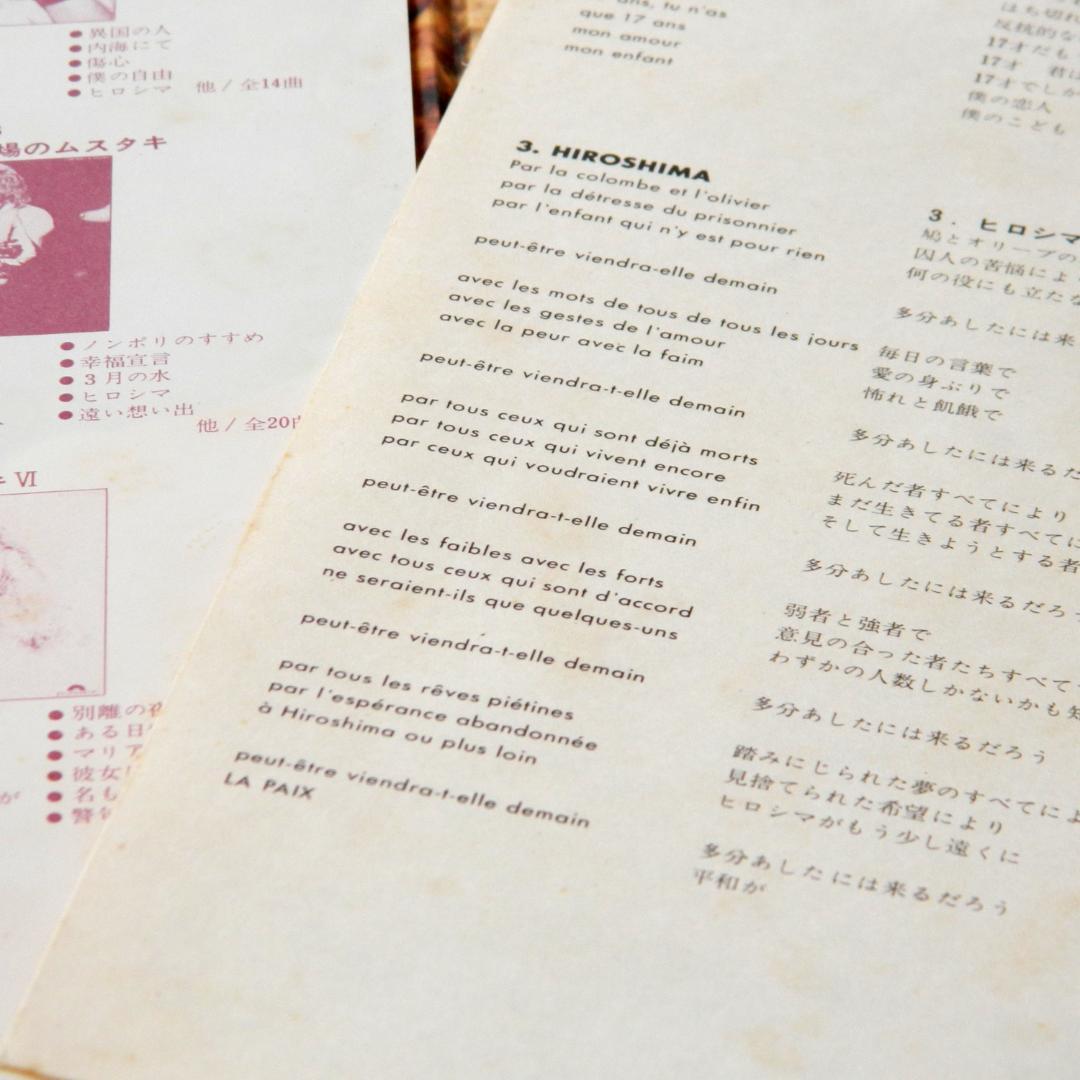 異国の人
内海にて
傷心
僕の自由
ヒロシマ 他/全14曲
場のムスタキ
ノンポリのすすめ
幸福宣言
3月の水
ヒロシマ
遠い想い出
他/全20曲
VI
別離の
ある日
マリア
彼女
名も
が
ans, tu n'as
que 17 ans
mon amour
mon enfant
3. HIROSHIMA
Par la colombe et l'olivier
par la détresse du prisonnier
par l'enfant qui n'y est pour rien
peut-être viendra-elle demain
avec les mots de tous de tous les jours
avec les gestes de l'amour
avec la peur avec la faim
peut-être viendra-t-elle demain
par tous ceux qui sont déjà morts
par tous ceux qui vivent encore
par ceux qui voudraient vivre enfin
peut-être viendra-t-elle demain
avec les faibles avec les forts
avec tous ceux qui sont d'accord
ne seraient-ils que quelques-uns
peut-être viendra-t-elle demain
par tous les rêves piétines
par l'espérance abandonnée
à Hiroshima ou plus loin
peut-être viendra-t-elle demain
LA PAIX
はち切れ
反抗的な
17才だも
17才 君は
17才でしか
僕の恋人
僕のこども
3. ヒロシマ
鳩とオリーブの
囚人の苦悩によ
何の役にも立たな
多分あしたには来
毎日の言葉で
愛の身ぶりで
怖れと飢餓で
多分あしたには来るだ
死んだ者すべてにより
まだ生きてる者すべてに
そして生きようとする者
多分あしたには来るだろう
弱者と強者で
意見の合った者たちすべて
わずかの人数しかないかも知
多分あしたには来るだろう
踏みにじられた夢のすべてによ
見捨てられた希望により
ヒロシマがもう少し遠くに
多分あしたには来るだろう
平和が